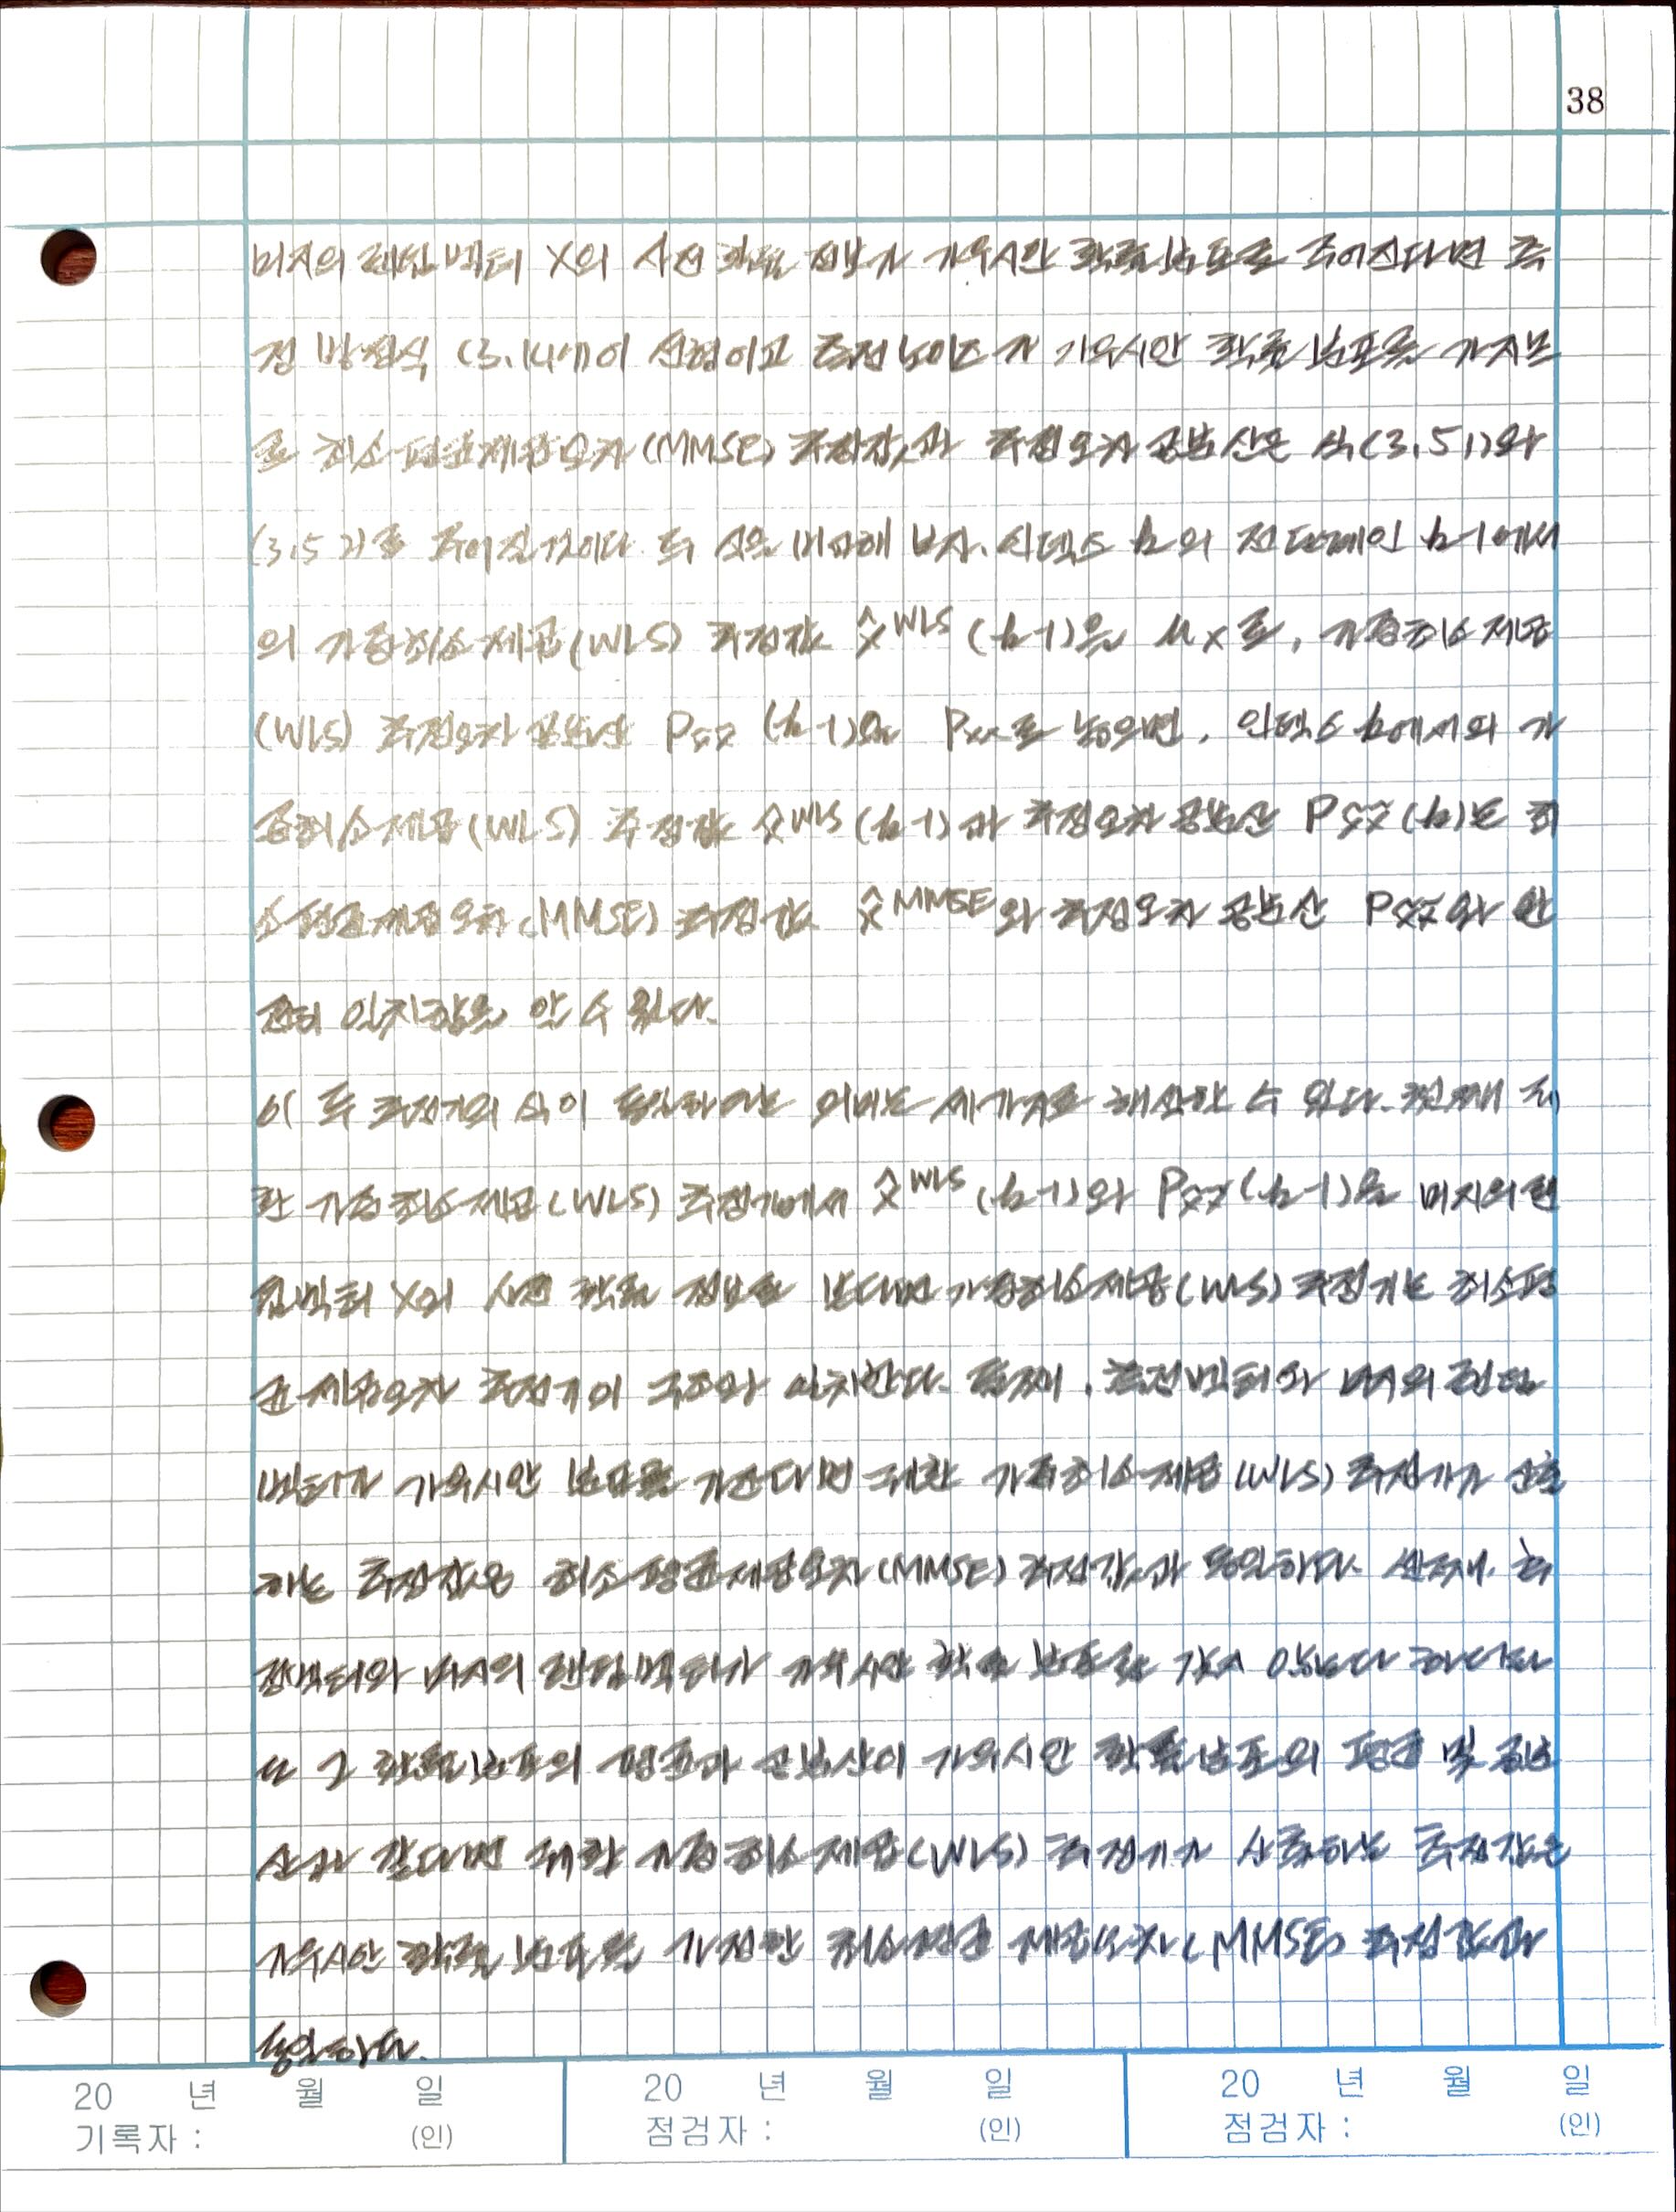 38
미지의 랜덤 벡터 X의 사전 확률 정보가 가우시안 확률분포로 주어진다면 측
정 방정식 (3.14)이 선형이고 측정 노이즈가 가우시안 확률 분포를 가지므
로 최소평균제곱오차(MMSE) 추정값과 추정오차 공분산은 식(3.51)와
(3.52)로 주어진것이다. 두 식을 비교해 보자. 인덱스 k의 전 단계인 k-1에서
의 가중최소제곱(WLS) 추정값 x̂^WLS (k-1)을 μx로, 가중최소제곱
(WLS) 추정오차 공분산 Px̃x̃ (k-1)을 Pxx로 놓으면, 인덱스 k에서의 가
중최소제곱(WLS) 추정값 x̂^WLS (k-1)과 추정오차 공분산 Px̃x̃ (k)는 최
소평균제곱오차(MMSE) 추정값 x̂^MMSE와 추정오차 공분산 Px̃x̃와 완
전히 일치함을 알 수 있다.
이 두 추정기의 식이 동일하다는 의미는 세가지로 해석할 수 있다. 첫째 재
환 가중최소제곱(WLS) 추정기에서 x̂^WLS (k-1)와 Px̃x̃ (k-1)을 미지의 랜
덤벡터 X의 사전 확률 정보로 본다면 가중최소제곱(WLS) 추정기는 최소평
균제곱오차 추정기의 구조와 일치한다. 둘째, 측정벡터와 미지의 랜덤
벡터가 가우시안 분포를 가진다면 재환 가중최소제곱(WLS) 추정기가 산출
하는 추정값은 최소평균제곱오차(MMSE) 추정값과 동일하다. 셋째, 측
정벡터와 미지의 랜덤벡터가 가우시안 확률 분포를 갖지 않는다 하더라
도 그 확률분포의 평균과 공분산이 가우시안 확률분포의 평균 및 공분
산과 같다면 재환 가중최소제곱(WLS) 추정기가 산출하는 추정값은
가우시안 확률 분포를 가정한 최소평균 제곱오차(MMSE) 추정값과
동일하다.
20 년 월 일 20 년 월 일 20 년 월 일
기록자 : (인) 점검자 : (인) 점검자 : (인)